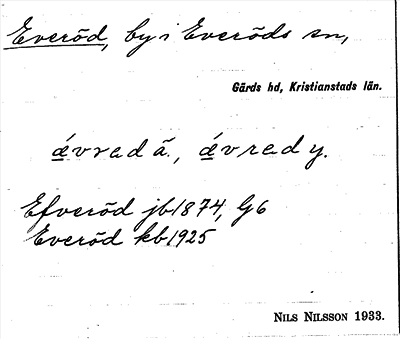 Everöd, by i Everöds sn,
Gärds hd, Kristianstads län.
ǽvradä, ǽvrady.
Efveröd jb 1874, G6
Everöd kb 1925
NILS NILSSON 1933.